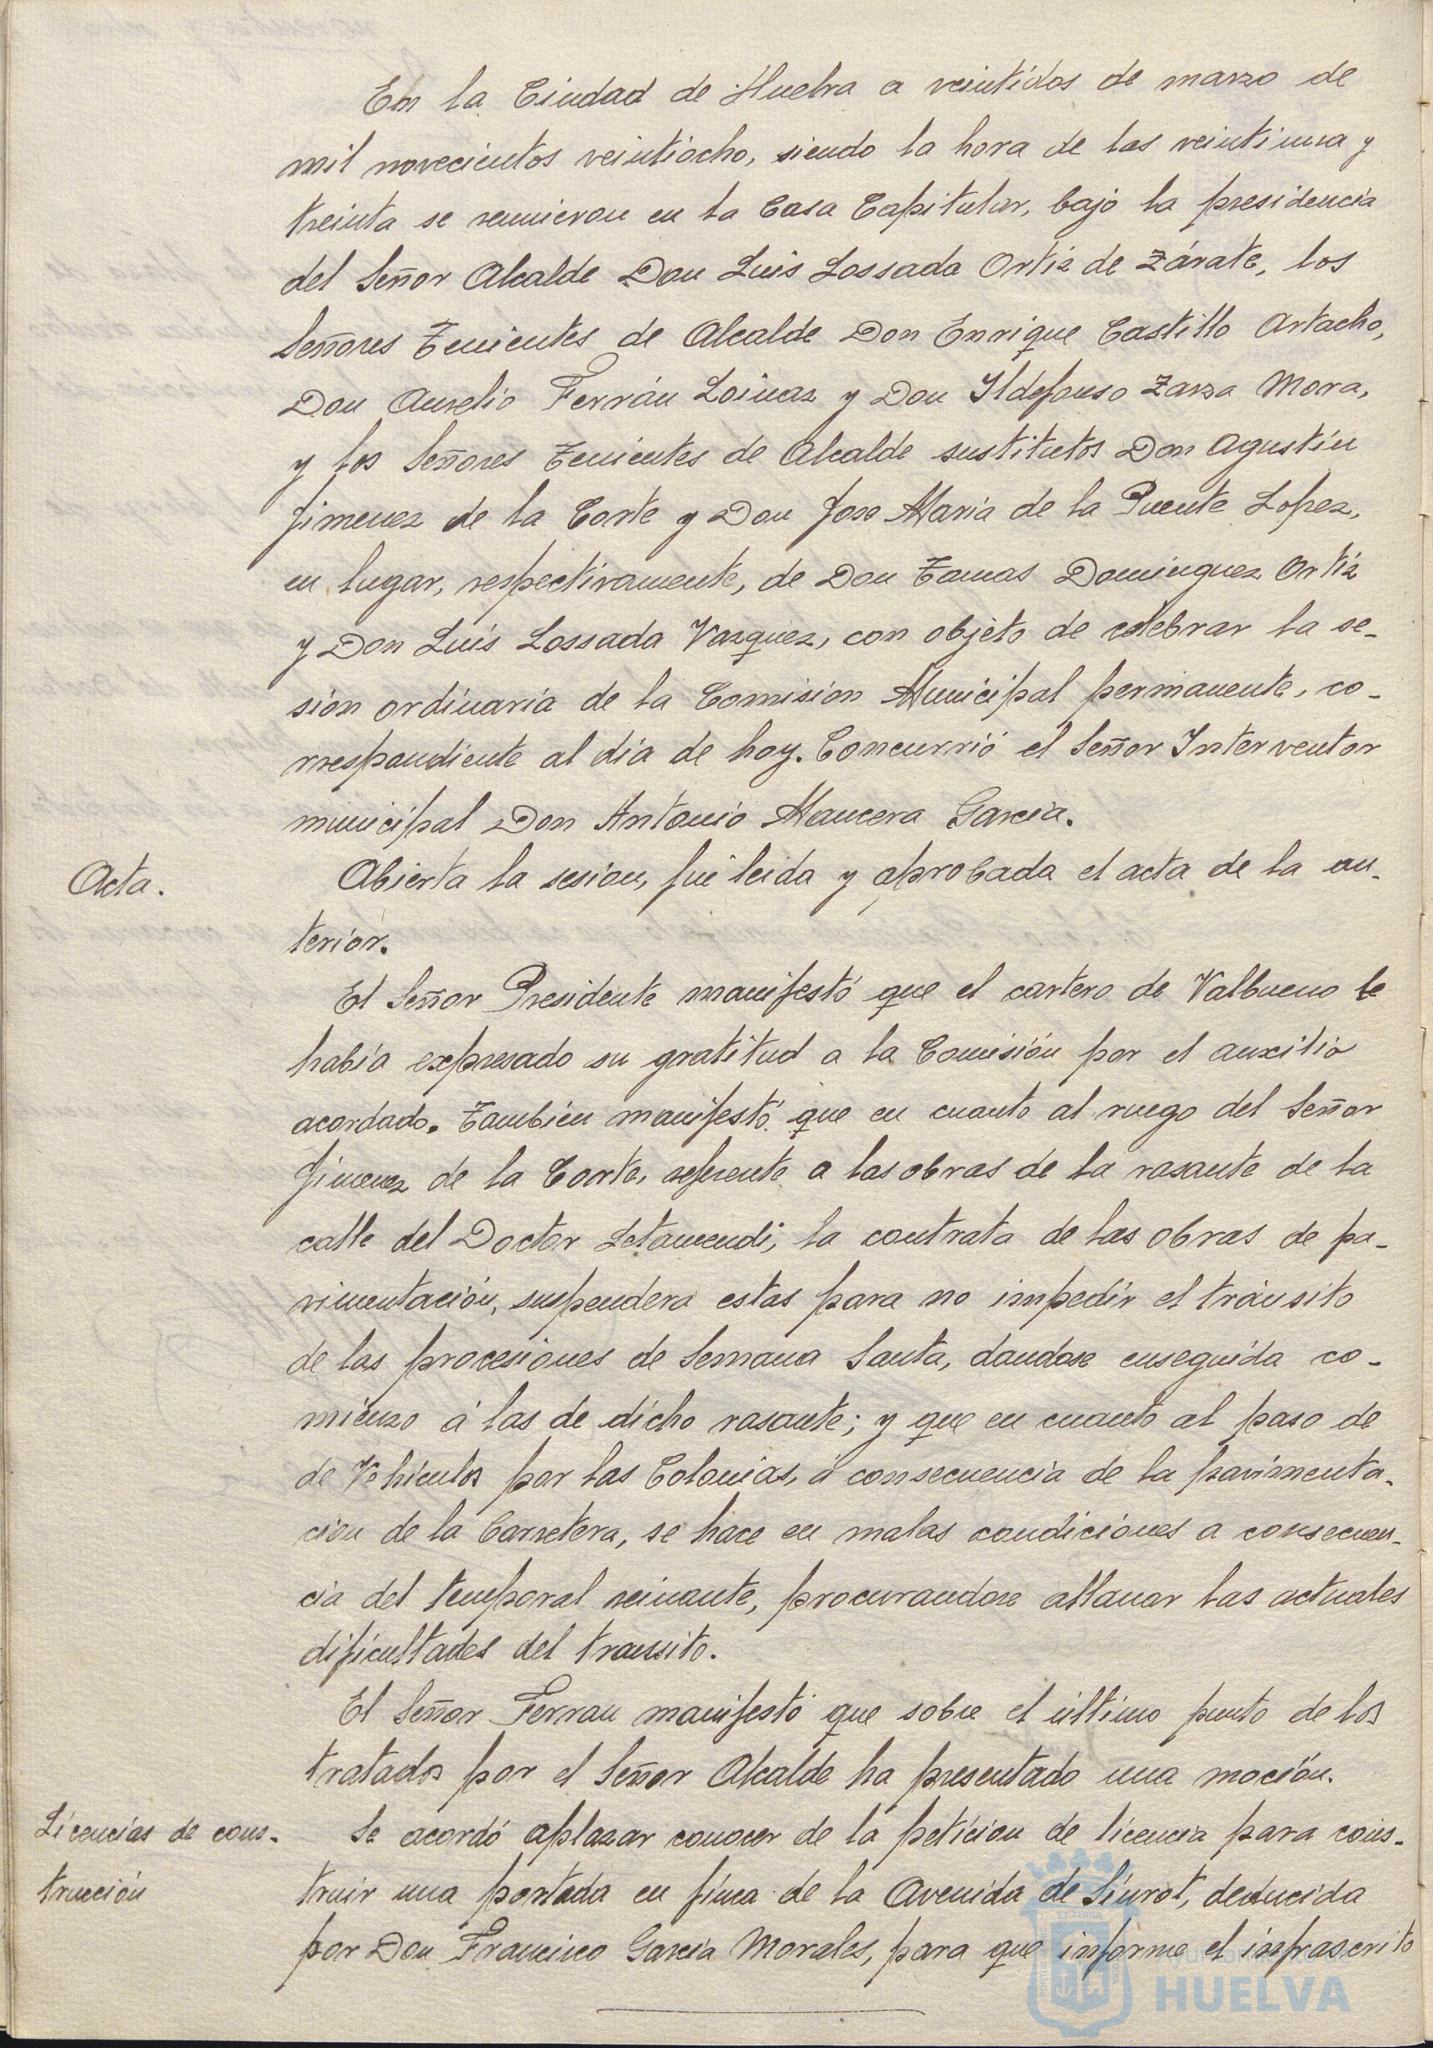 En la Ciudad de Huelva a veintidos de marzo de
mil novecientos veintiocho, siendo la hora de las veintiuna y
treinta se reunieron en la Casa Capitular, bajo la presidencia
del Señor Alcalde Don Luis Lossada Ortiz de Zárate, los
Señores Tenientes de Alcalde Don Enrique Castillo Artacho,
Don Aurelio Ferrán Loinaz y Don Ildefonso Zarza Mora,
y los Señores Tenientes de Alcalde sustitutos Don Agustín
Jimenez de la Corte y Don Jose María de la Puente Lopez,
en lugar, respectivamente, de Don Tomas Dominguez Ortiz
y Don Luís Lossada Vazquez, con objeto de celebrar la se-
sión ordinaria de la Comisión Municipal permanente, co-
rrespondiente al día de hoy. Concurrió el Señor Interventor
municipal Don Antonio Mancera García.
Acta.
Abierta la sesion, fué leida y aprobada el acta de la an-
terior.
El Señor Presidente manifestó que el cartero de Valbueno le
había expresado su gratitud a la Comisión por el auxilio
acordado. Tambien manifestó que en cuanto al ruego del Señor
Jimenez de la Corte, referente a las obras de la rasante de la
calle del Doctor Letamendi, la contrata de las obras de pa-
vimentación, suspendera estas para no impedir el tránsito
de las procesiones de Semana Santa, dandose enseguida co-
mienzo á las de dicho rasante; y que en cuanto al paso de
de Vehiculos por las Colonias, á consecuencia de la pavimenta-
cion de la Carretera, se hace en malas condiciones a consecuen-
cia del temporal reinante, procurandose allanar las actuales
dificultades del transito.
El Señor Ferran manifestó que sobre el último punto de los
tratados por el Señor Alcalde ha presentado una moción.
Licencias de cons-
trucción
Se acordó aplazar conocer de la petícion de licencia para cons-
truir una portada en finca de la Avenida de Siurot, deducida
por Don Francisco García Morales, para que informe el infrascrito
Ayuntamiento de
HUELVA